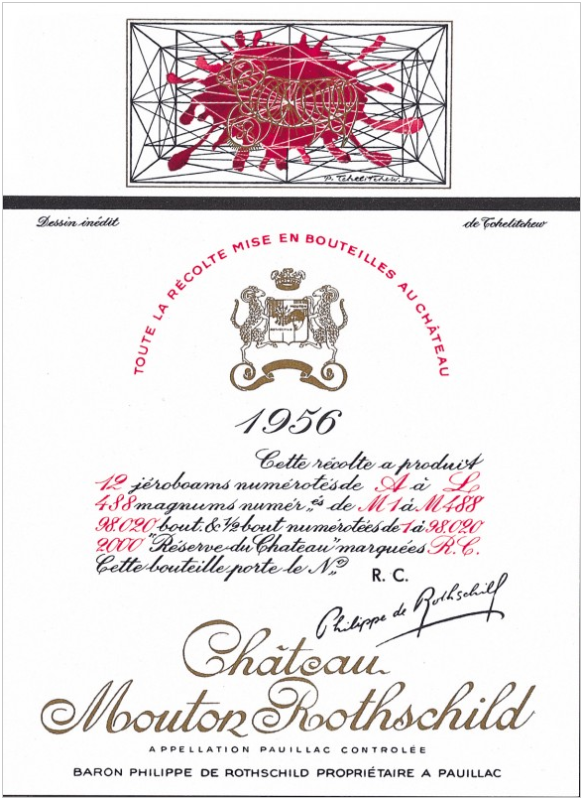 P. Tchelitchew. 55
Dessin inédit
de Tchelitchew
TOUTE LA RÉCOLTE MISE EN BOUTEILLES AU CHÂTEAU
1956
Cette récolte a produit
12 jéroboams numérotés de A à L
488 magnums numér,,és de M1 à M488
98.020 bout. & ½ bout. numérotées de 1 à 98.020
2000 "Réserve du Chateau" marquées R.C.
Cette bouteille porte le No R. C.
Philippe de Rothschild
Château
Mouton Rothschild
APPELLATION PAUILLAC CONTROLÉE
BARON PHILIPPE DE ROTHSCHILD PROPRIÉTAIRE A PAUILLAC